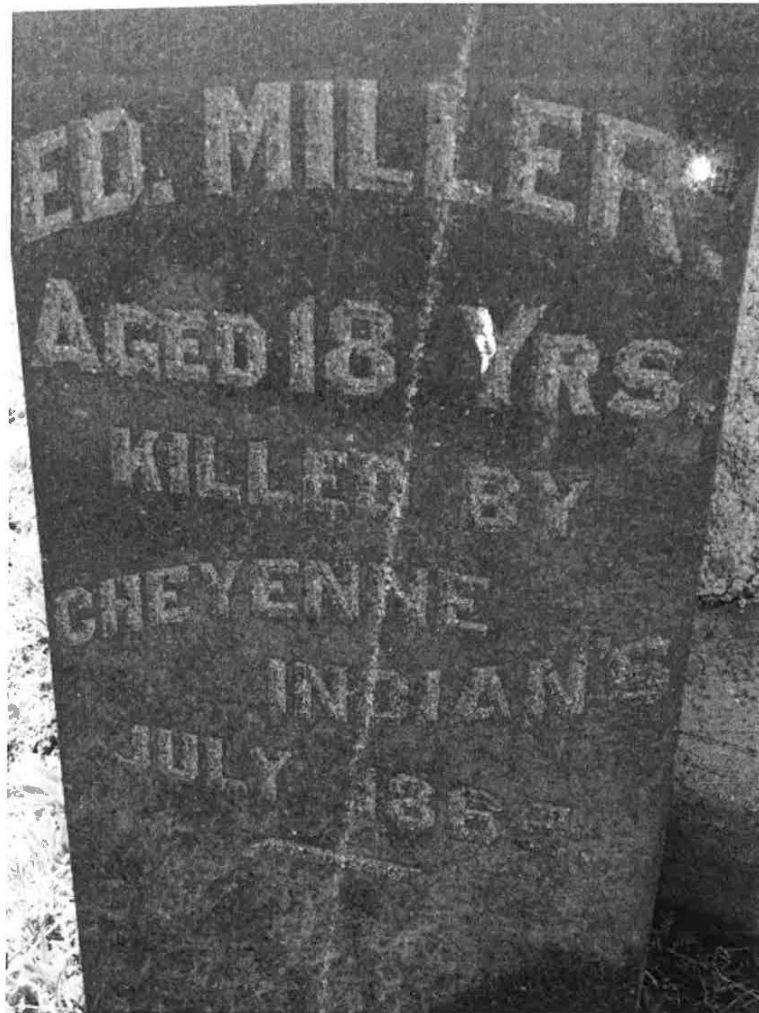 ED. MILLER.
AGED 18 YRS.
KILLED BY
CHEYENNE
INDIAN'S
JULY